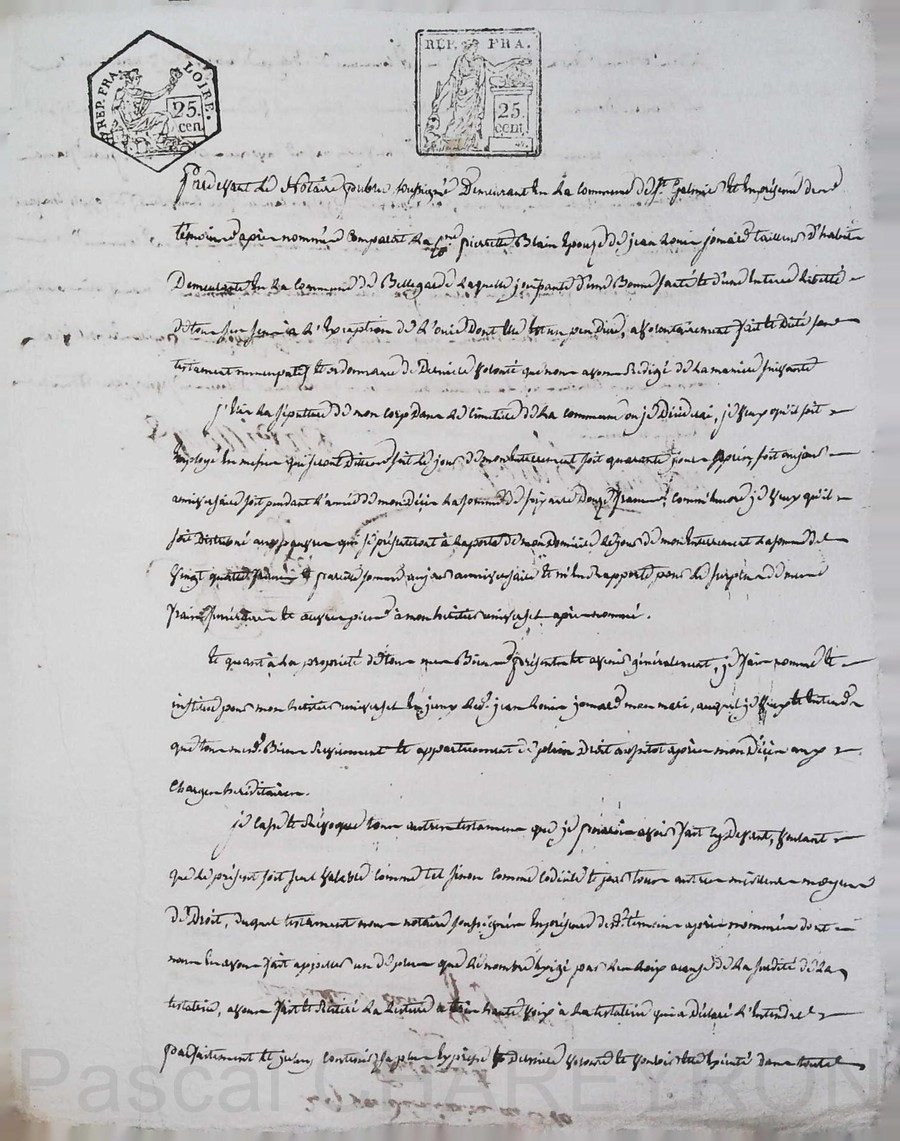 REP. FRA. LOIRE.
25. cen.
REP. FRA.
25 cent.
Pardevant le Notaire public soussigné Demeurant en La Commune de St Galmier et En présence de
témoins après nommés Comparut La Cne pierrette Blain Epouse de jean Louis jomard tailleur D'habits
Demeurante En La Commune de Bellegarde Laquelle jouissante d'une Bonne santé et d'une Entiere Liberté
de tous ses sens à L'Exception de L'ouie Dont Elle est un peu Dure, a volontairement fait et Dicté son
testament nuncupatif et ordonnance de Derniere volonté que nous avons Redigé de La maniere suivante
j'Elis La sépulture de mon corps Dans Le Cimetiere de La commune ou je Décederai, je veux qu'il soit
Employé En messes qui seront Dittes soit Le jour de mon Enterrement soit quarante jours après, soit au jour
anniversaire soit pendant L'année de mon Décès La somme de soixante Douze francs, comm'Encore je veux qu'il
soit Distribué aux pauvres qui se présenteront à La porte de mon Domicile Le jour de mon Enterrement La somme de
Vingt quatre francs et pareille somme au jour anniversaire et m'En Rapporte pour Le surplus de mes
frais funéraires et œuvres pies à mon héritier universel après nommé.
Et quant à La propriété de tous mes Biens présents et avenir généralement, je fais nomme et
institue pour mon héritier universel En jceux Led. jean Louis jomard mon mari, auquel je veux et Entends
que tous mesd. Biens Reviennent et appartiennent de plein Droit aussitot après mon Décès aux
charges héréditaires.
je casse et Révoque tous autres testaments que je pourrois avoir fait cy Devant, voulant
que Le présent soit seul valable comme tel sinon comme codicile et par tous autres meilleurs moyens
de Droit, duquel testament nous notaire soussigné En présence des témoins après nommés dont
nous En avons fait appeller un de plus que Le nombre Exigé par La Loix a cause de La surdité de La
testatrice, avons fait et Réitéré La Lecture a très haute voix à La testatrice qui a Déclaré L'Entendre
parfaitement et jcelui contenir sa plus Expresse et Derniere volonté et vouloir Etre Exécuté dans toute
Pascal CHAREYRON